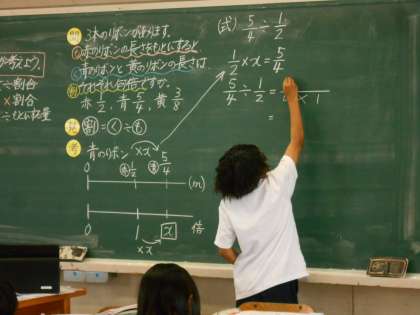 考えよう。
÷割合
×割合
÷もとにする量
問 3本のリボンがあります。
赤のリボンの長さをもとにすると
青のリボンと黄のリボンの長さは
それぞれ何倍ですか。
赤 1/2, 青 5/4, 黄 3/8
割=く÷も
考 青のリボン ×x
赤 1/2 青 5/4
0 (m)
0 1 x 倍
×x
(式) 5/4 ÷ 1/2
1/2 × x = 5/4
5/4 ÷ 1/2 =
× 1
=